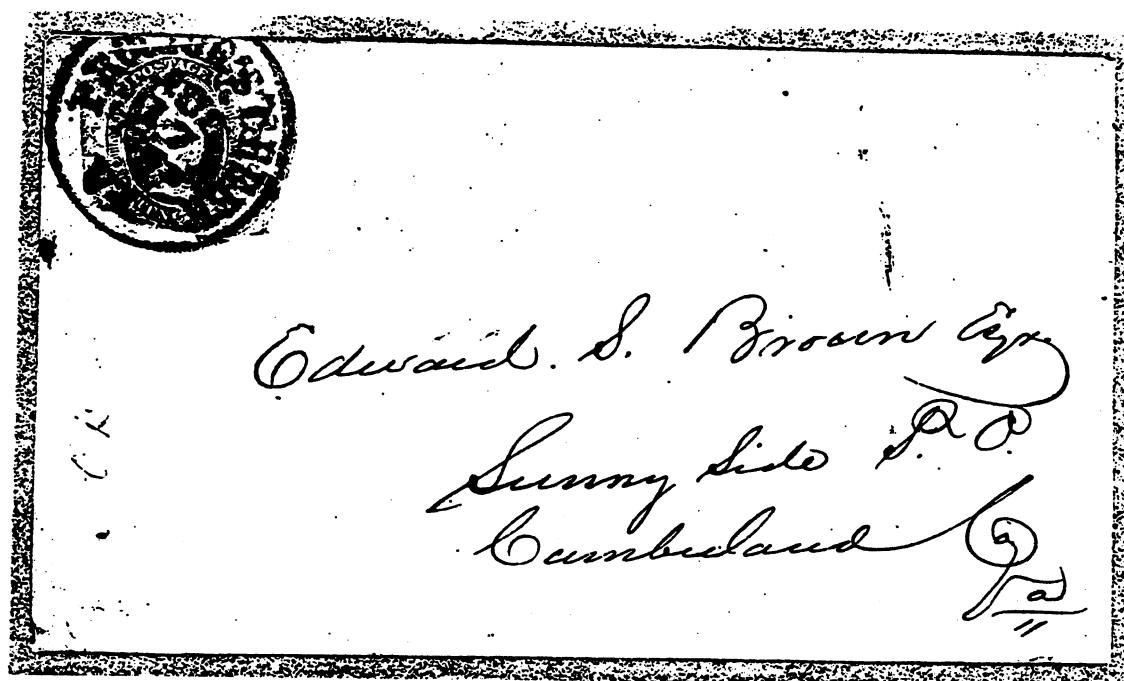 POSTAGE
Edward. S. Brown Esqr.
Sunny Side P. O.
Cumberland Co
Va